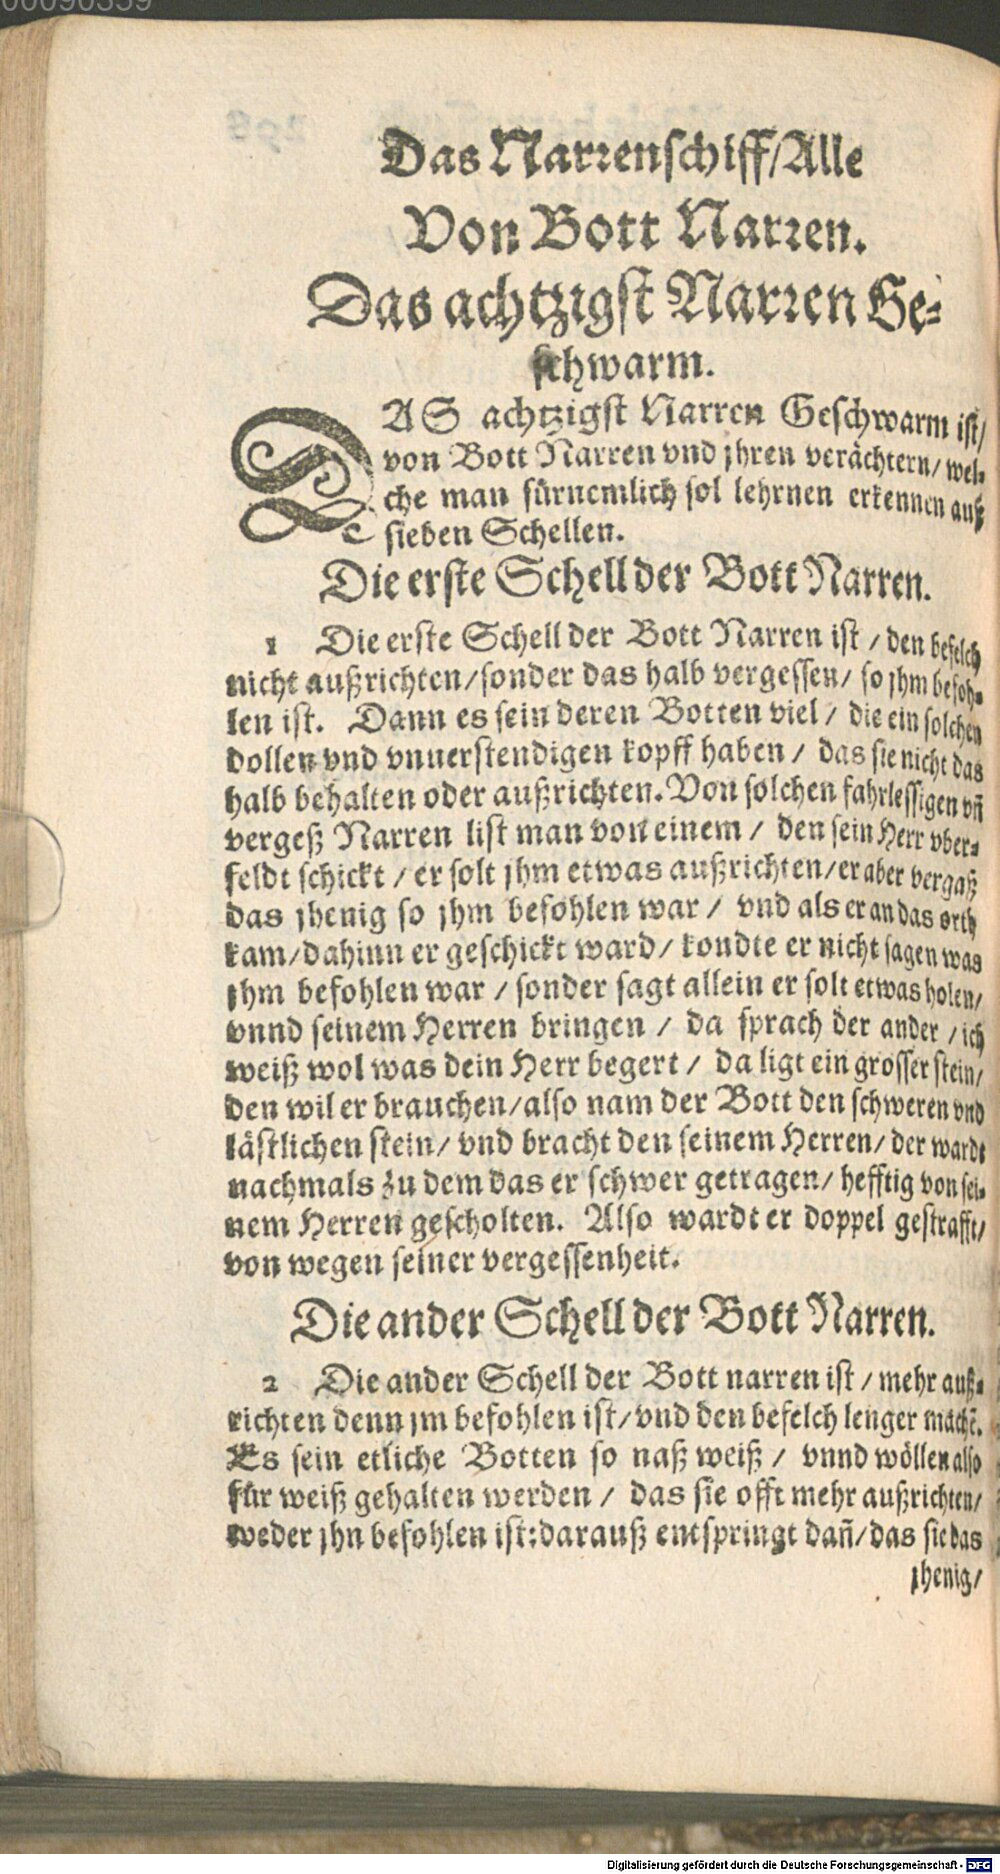 00090359
Das Narrenschiff/Alle
Von Bott Narren.
Das achtzigst Narren Ge-
schwarm.
DAS achtzigst Narren Geschwarm ist/
von Bott Narren vnd jhren verächtern/ wel-
che man fürnemlich sol lehrnen erkennen auß
sieben Schellen.
Die erste Schell der Bott Narren.
1 Die erste Schell der Bott Narren ist / den befelch
nicht außrichten/sonder das halb vergessen/ so jhm befoh-
len ist. Dann es sein deren Botten viel / die ein solchen
dollen vnd vnuerstendigen kopff haben / das sie nicht das
halb behalten oder außrichten. Von solchen fahrlessigen vñ
vergeß Narren list man von einem / den sein Herr vber-
feldt schickt / er solt jhm etwas außrichten/er aber vergaß
das jhenig so jhm befohlen war / vnd als er an das orth
kam/dahinn er geschickt ward/ kondte er nicht sagen was
jhm befohlen war / sonder sagt allein er solt etwas holen/
vnnd seinem Herren bringen / da sprach der ander / ich
weiß wol was dein Herr begert / da ligt ein grosser stein/
den wil er brauchen/also nam der Bott den schweren vnd
lästlichen stein/ vnd bracht den seinem Herren/ der wardt
nachmals zu dem das er schwer getragen/ hefftig von sei-
nem Herren gescholten. Also wardt er doppel gestrafft/
von wegen seiner vergessenheit.
Die ander Schell der Bott Narren.
2 Die ander Schell der Bott narren ist / mehr auß-
richten denn jm befohlen ist/vnd den befelch lenger machẽ.
Es sein etliche Botten so naß weiß / vnnd wöllen also
für weiß gehalten werden / das sie offt mehr außrichten/
weder jhn befohlen ist:darauß entspringt dañ/das sie das
jhenig/
Digitalisierung gefördert durch die Deutsche Forschungsgemeinschaft - DFG